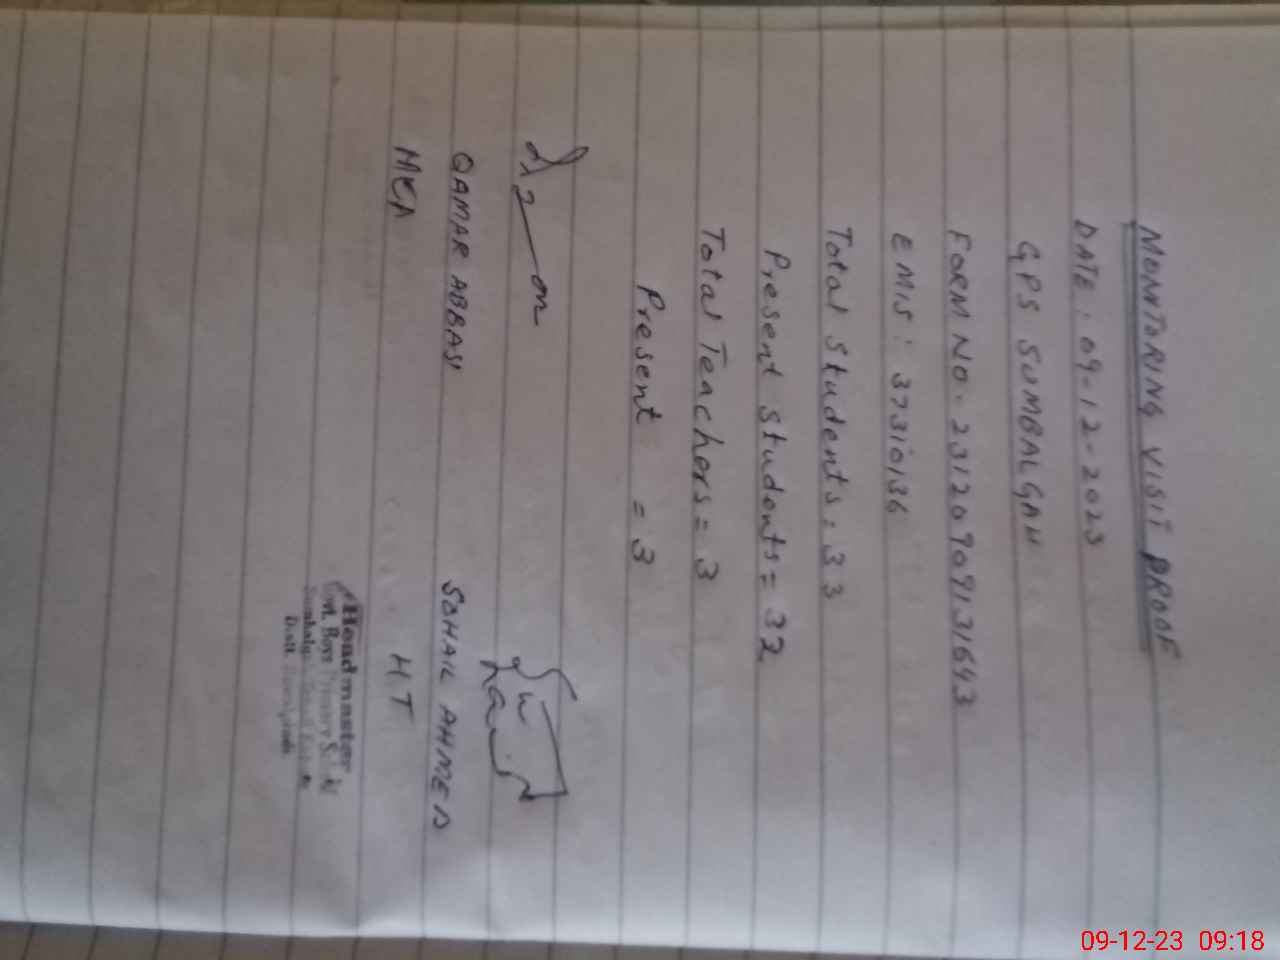 MONITORING VISIT PROOF
DATE: 09-12-2023
GPS SUMBALGAH
FORM NO. 23120909131643
EMIS: 37310136
Total Students: 33
Present Students = 32
Total Teachers = 3
Present = 3
QAMAR ABBASI SOHAIL AHMED
MEA HT
Headmaster
Govt. Boys Primary School
Distt
09-12-23 09:18